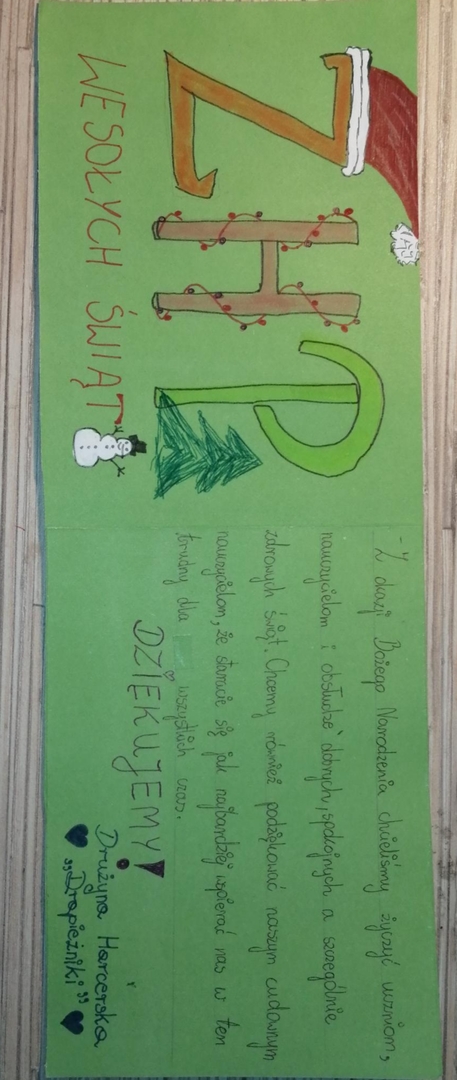 ZHP
WESOŁYCH ŚWIĄT
- Z okazji Bożego Narodzenia chcieliśmy życzyć uczniom,
nauczycielom i obsłudze dobrych, spokojnych a szczególnie
zdrowych świąt. Chcemy również podziękować naszym cudownym
nauczycielom, że staracie się jak najbardziej wspierać nas w ten
trudny dla wszystkich czas.
DZIĘKUJEMY!
Drużyna Harcerska
„Drapieżniki”